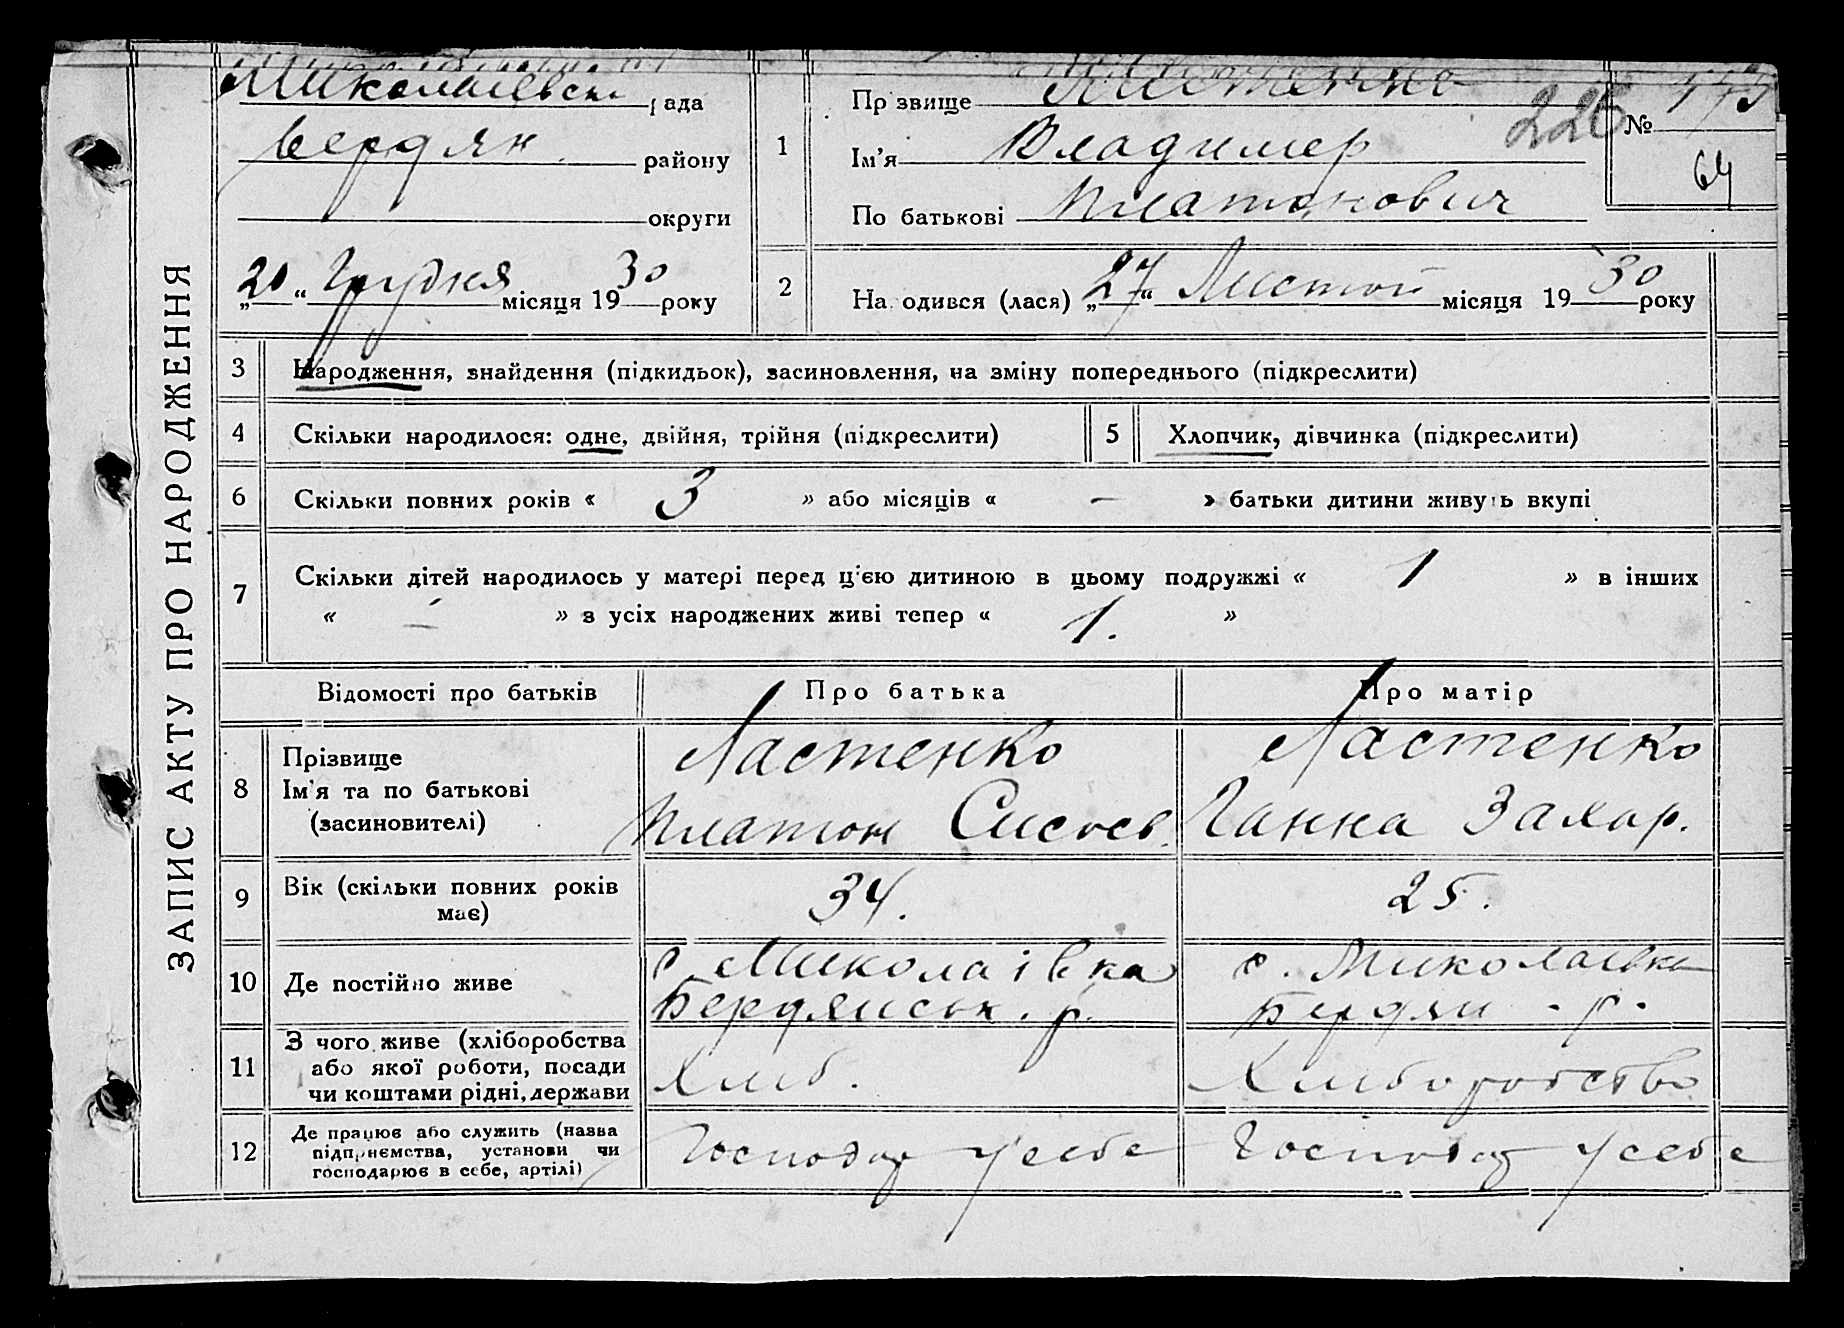 ЗАПИС АКТУ ПРО НАРОДЖЕННЯ
Миколаївськ рада
Бердян. району
округи
„20“ Грудня місяця 1930 року
1
Пр звище Ластенко
Ім'я Владимер
По батькові Платонович
226
№
64
2
На одився (лася) „27“ Листоп місяця 1930 року
3 Народження, знайдення (підкидьок), засиновлення, на зміну попереднього (підкреслити)
4 Скільки народилося: одне, двійня, трійня (підкреслити) 5 Хлопчик, дівчинка (підкреслити)
6 Скільки повних років « 3 » або місяців « – » батьки дитини живуть вкупі
7 Скільки дітей народилось у матері перед ц'єю дитиною в цьому подружжі « 1 » в інших
« – » з усіх народжених живі тепер « 1. »
Відомості про батьків Про батька Про матір
8 Прізвище
Ім'я та по батькові
(засиновителі)
Ластенко
Платон Сисоєв.
Ластенко
Ганна Захар.
9 Вік (скільки повних років
має)
34.
25.
10 Де постійно живе
с. Миколаївка
Бердянськ. р.
с. Миколаївка
Бердян. р.
11 З чого живе (хліборобства
або якої роботи, посади
чи коштами рідні, держави
Хліб.
Хліборобство
12 Де працює або служить (назва
підприємства, установи чи
господарює в себе, артілі)
Господар у себе
Господар у себе